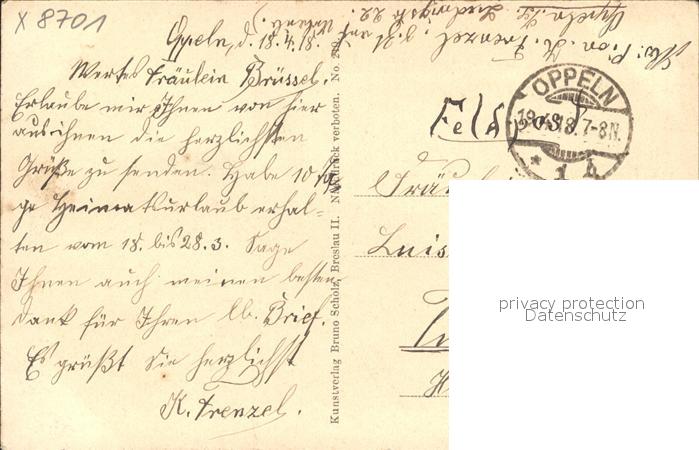 X 8701
Oppeln, d. 18.4.18.
Wertes Fräulein Brüssel.
Erlaube mir Ihnen von hier
aus ihnen die herzlichsten
Grüße zu senden. Habe 10 tä
ge Heimatsurlaub erhal-
ten vom 18. bis 28.3. Sage
Ihnen auch meinen besten
Dank für Ihren lb. Brief.
Es grüßt Sie herzlichst
K. Frenzel.
Kunstverlag Bruno Scholz, Breslau II. Nachdruck verboten. No.
Frenzel, z. Zt auf Urlaub
Oppeln
22.
OPPELN
18. 7-8N.
* 1 h
Feldpost
Fräu
Luis
privacy protection
Datenschutz